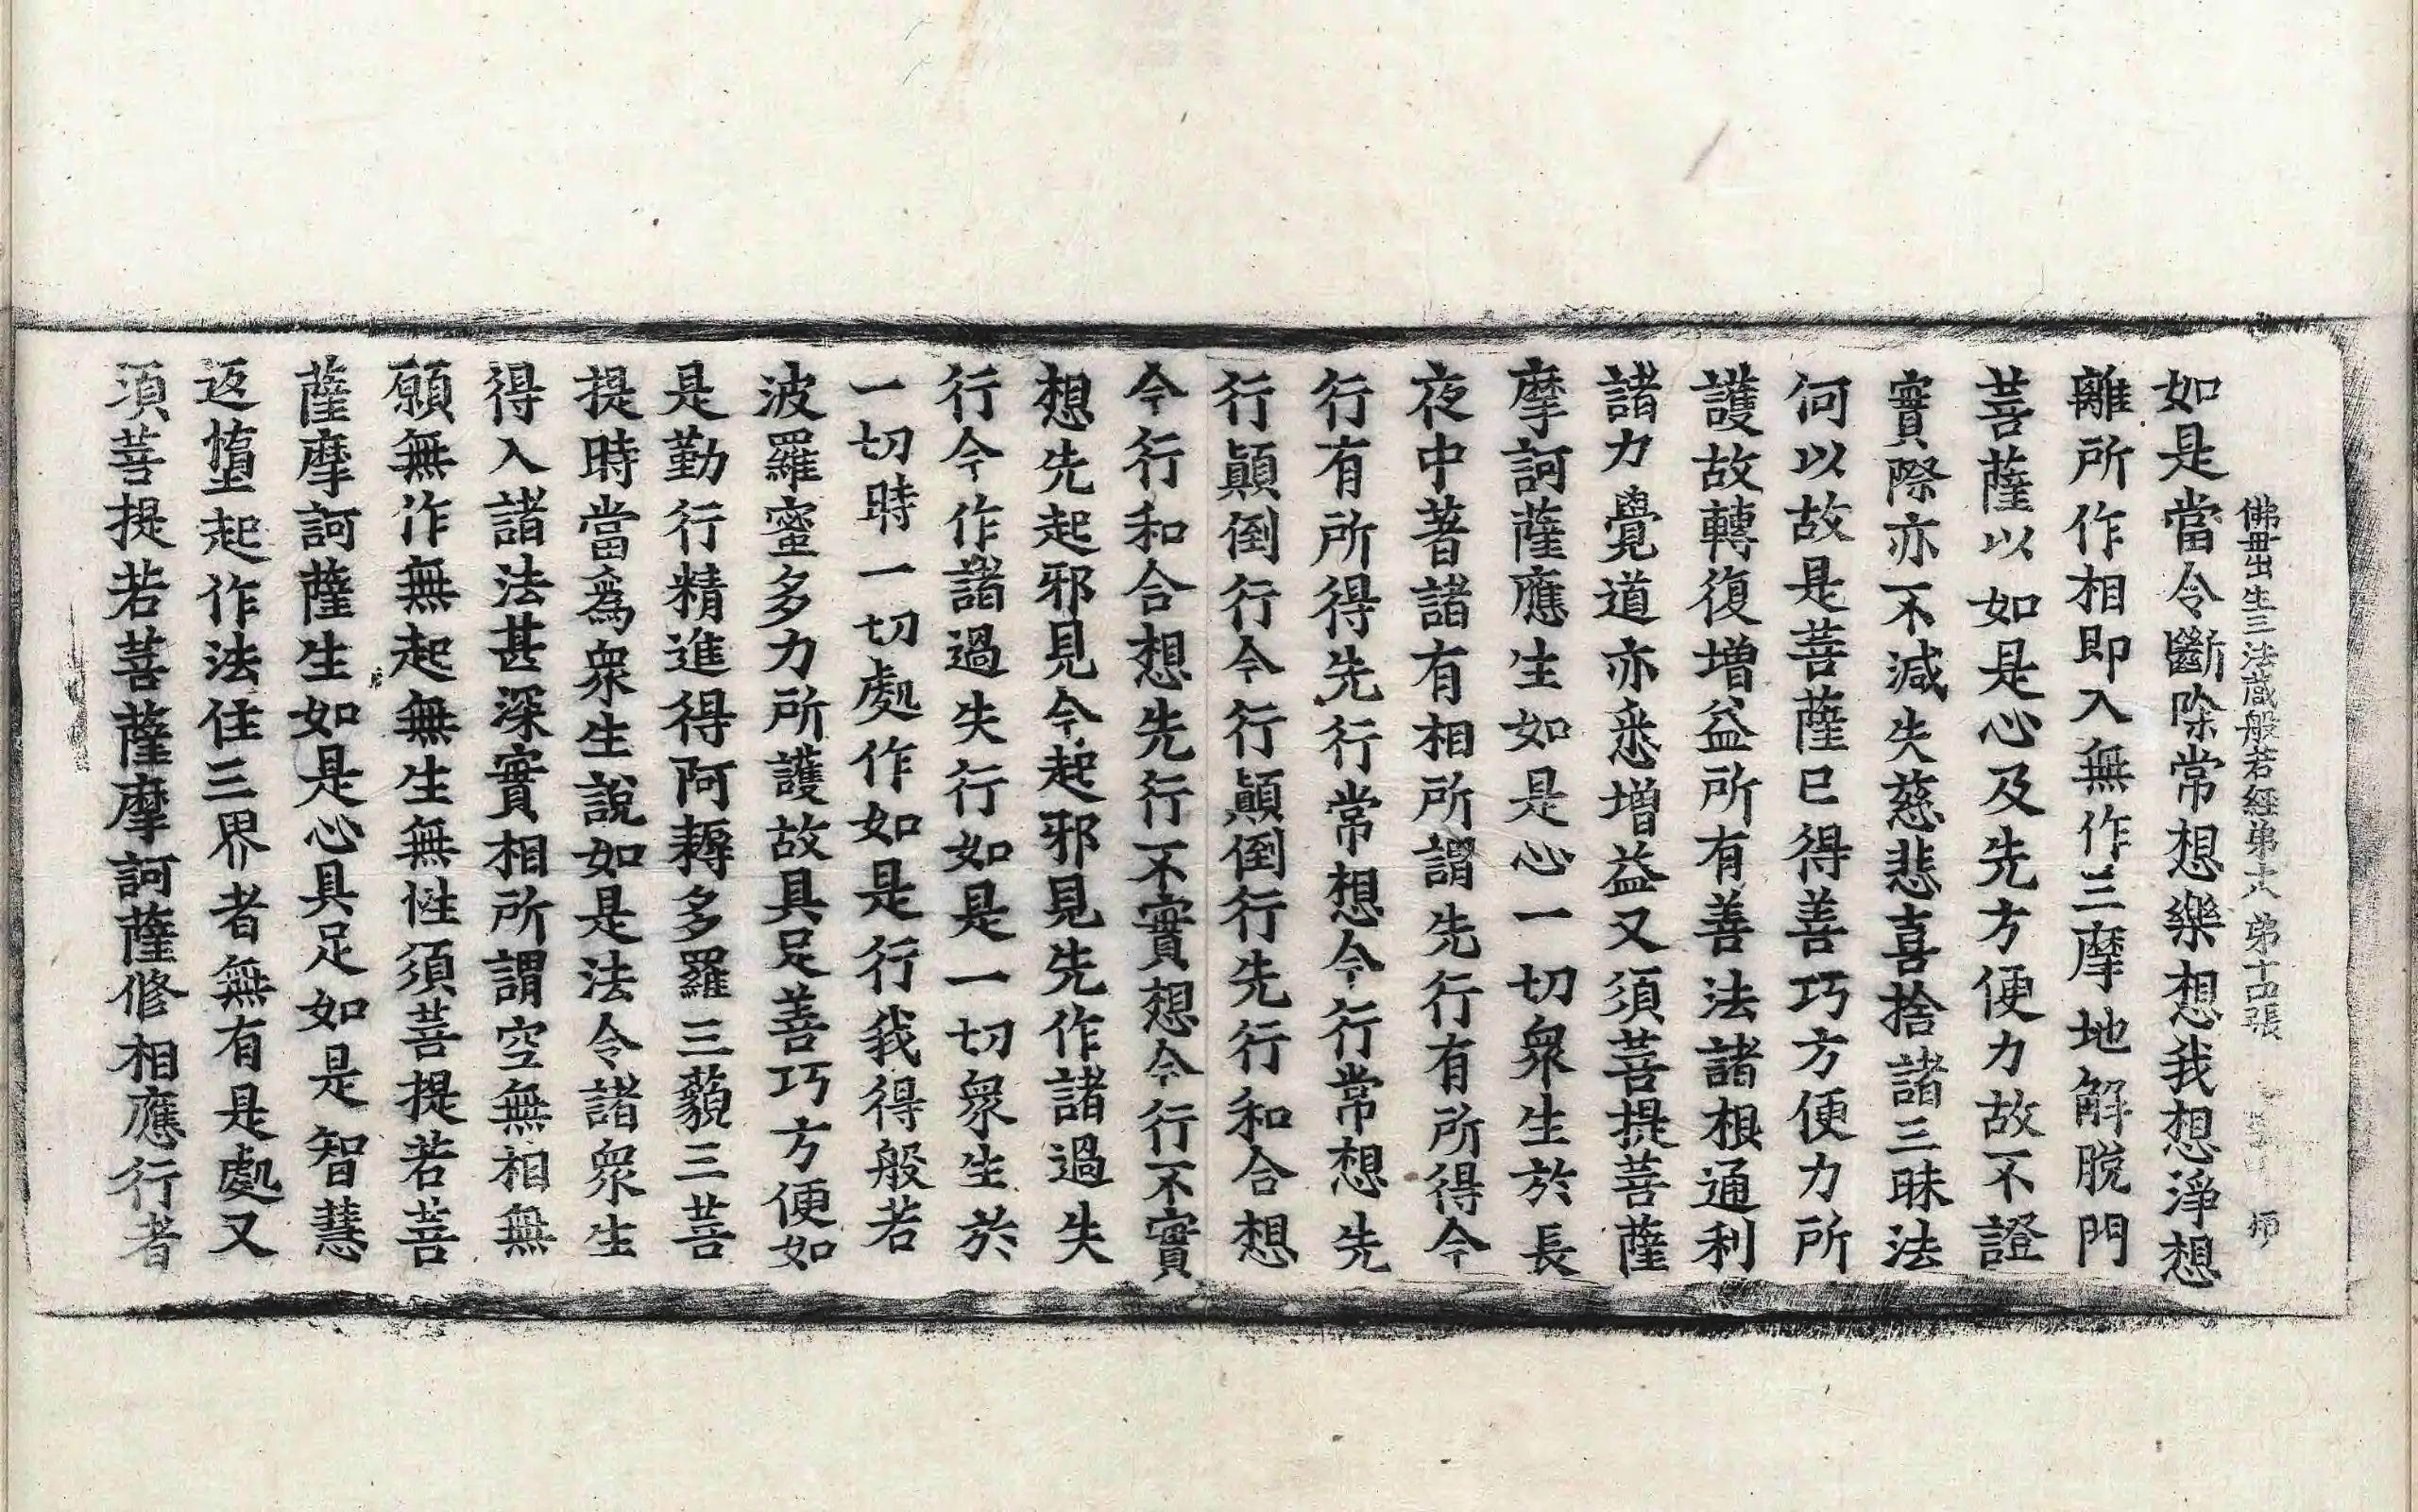 佛母出生三法蔵般若經第六 第十四張 師
如是當令斷除常想樂想我想淨想
離所作相即入無作三摩地解脫門
菩薩以如是心及先方便力故不證
實際亦不減失慈悲喜捨諸三昧法
何以故是菩薩已得善巧方便力所
護故轉復增益所有善法諸根通利
諸力覺道亦悉增益又須菩提菩薩
摩訶薩應生如是心一切衆生於長
夜中著諸有相所謂先行有所得今
行有所得先行常想今行常想先
行顛倒行今行顛倒行先行和合想
今行和合想先行不實想今行不實
想先起邪見今起邪見先作諸過失
行今作諸過失行如是一切衆生於
一切時一切處作如是行我得般若
波羅蜜多力所護故具足善巧方便如
是勤行精進得阿耨多羅三藐三菩
提時當爲衆生說如是法令諸衆生
得入諸法甚深實相所謂空無相無
願無作無起無生無性須菩提若菩
薩摩訶薩生如是心具足如是智慧
返墮起作法住三界者無有是處又
須菩提若菩薩摩訶薩修相應行者